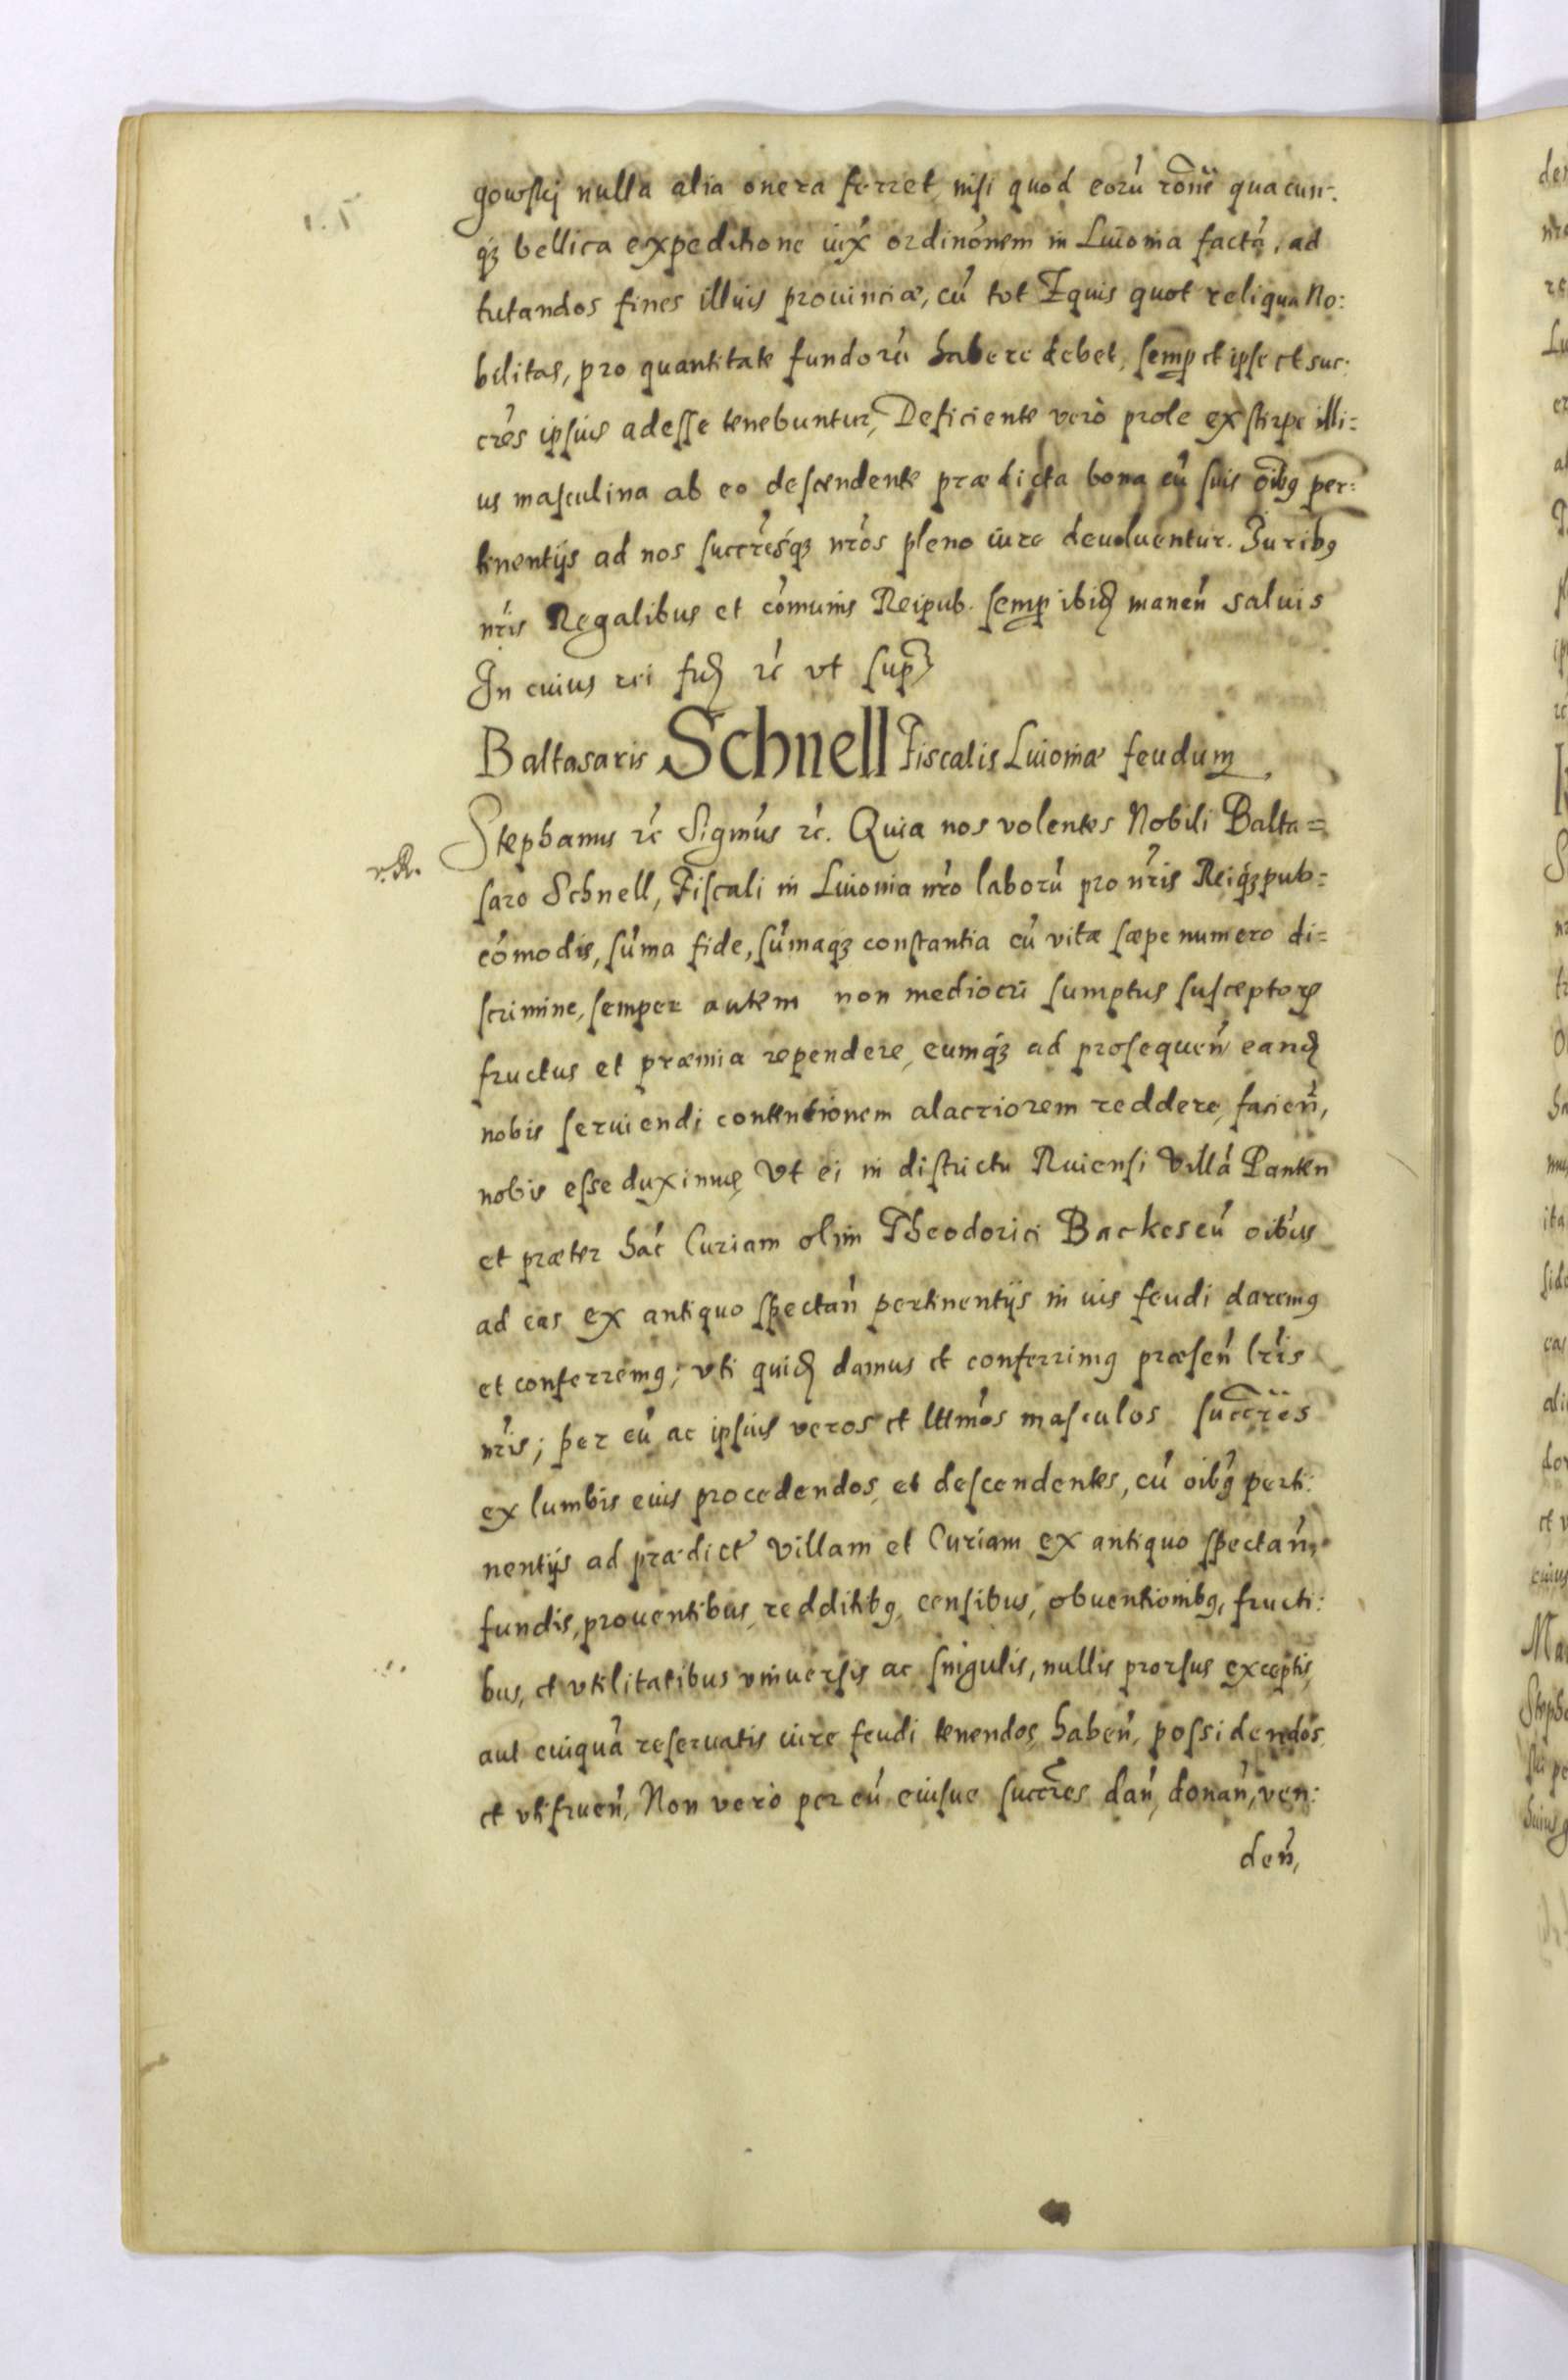 gowskj nulla alia onera ferret, nisi quod eorū rōne quacun:
q́ꝫ bellica expeditione iux̄ ordinōnem in Liuonia factā, ad
tutandos fines illius prouinciæ, cū tot Equis quot reliqua No:
bilitas, pro quantitate fundorū habere debet, semp et ipse et suc:
crēs ipsius adesse tenebuntur, Deficiente verò prole ex stirpe illi:
us masculina ab eo descendente prædicta bona cū suis oībꝯ per:
tinentijs ad nos succrēsq́ꝫ nrōs pleno iure deuoluentur. Juribꝯ
nrīs Regalibus et cōmunis Reipub. semp ibid manen̄ saluis
In cuius rei fid ꝛc̄ vt sup
Baltasaris Schnell Fiscalis Liuoniæ feudum
Stephanus ꝛc̄ Sigmūs ꝛc̄. Quia nos volentes Nobili Balta=
saro Schnell, Fiscali in Liuonia nrō laborū pro nrīs Reiq́ꝫpub=
cōmodis, sūma fide, sūmaq́ꝫ constantia cū vitæ sæpe numero di=
scrimine, semper autem non mediocri sumptus susceptorꝝ
fructus et præmia rependere, eumq́ꝫ ad prosequen̄ eand
nobis seruiendi contentionem alacriorem reddere, facien̄,
nobis esse duximus Vt ei in districtu Ruiensi Villā Panten
et præter hāc Curiam olim Theodorici Backes cū oibūs
ad eas ex antiquo spectan̄ pertinentijs in uis feudi daremꝯ
et conferremꝯ; vti quid damus et conferrimꝯ præsen̄ lrīs
nrīs; per eū ac ipsius veros et lttmōs masculos succrēs
ex lumbis eius procedendos, et descendentes, cū oibꝯ̄ perti:
nentijs ad prædict̄ villam et Curiam ex antiquo spectan̄,
fundis, prouentibus, redditibꝯ, censibus, obuentionibꝯ, fructi:
bus, et vtilitatibus vniuersis ac singulis, nullis prorsus exceptis,
aut cuiquā reseruatis iure feudi tenendos, haben̄, possidendos,
et vtifruen̄, Non verò per eū eiusue succrēs dan̄, donan̄, ven:
den̄,